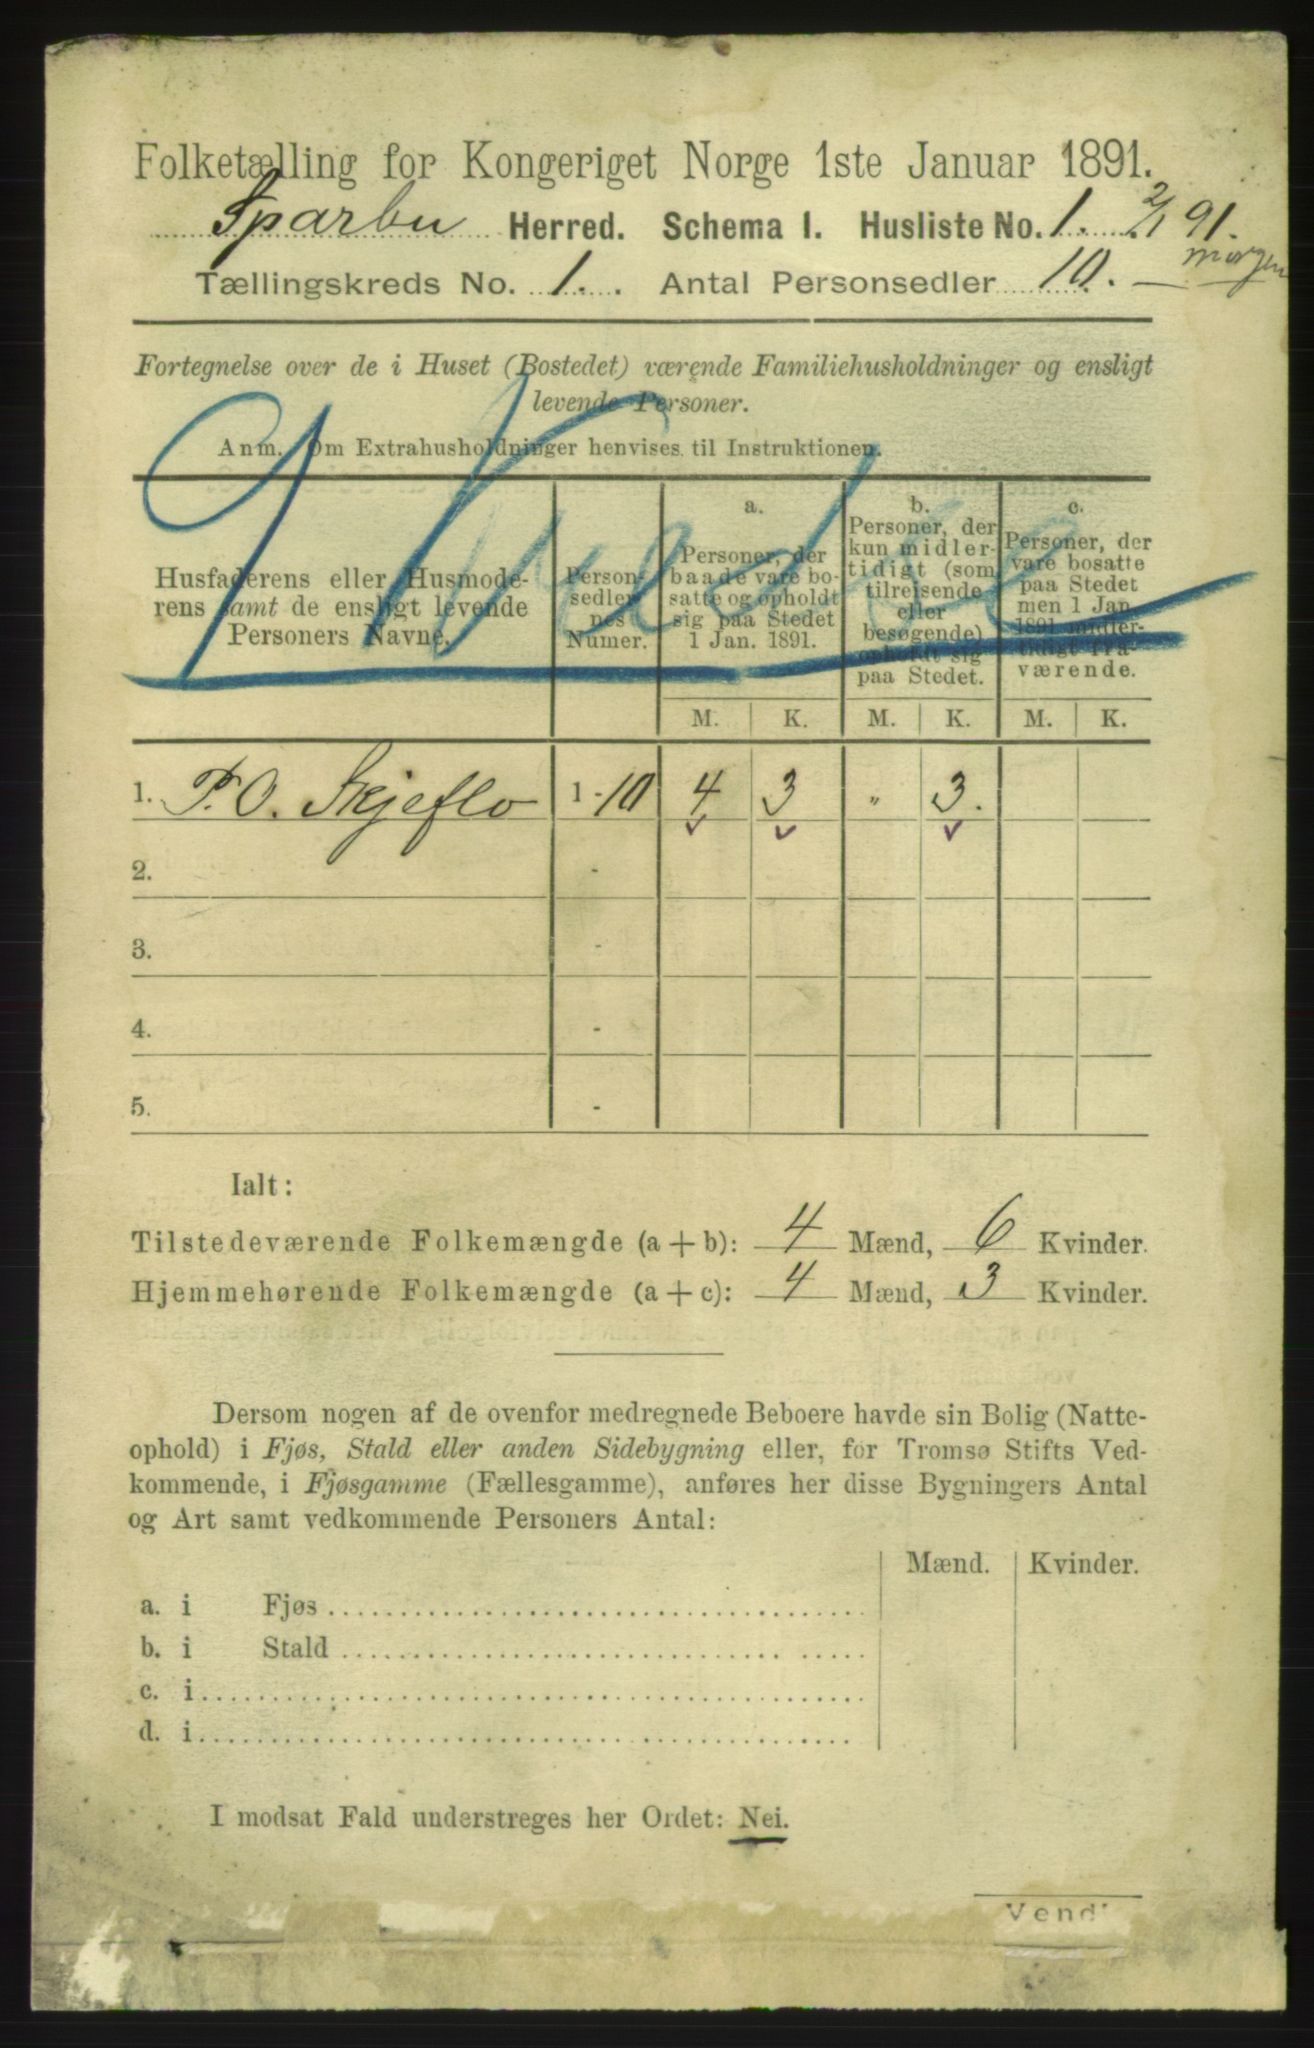 Folketælling for Kongeriget Norge 1ste Januar 1891.
Sparbu Herred. Schema I. Husliste No. 1. 2/1 91.
morgen
Tællingskreds No. 1. Antal Personsedler 10.
Fortegnelse over de i Huset (Bostedet) værende Familiehusholdninger og ensligt
levende Personer.
Anm. Om Extrahusholdninger henvises til Instruktionen.
Husfaderens eller Husmode-
rens samt de ensligt levende
Personers Navne.
Person-
sedler-
nes
Numer.
a.
Personer, der
baade vare bo-
satte og opholdt
sig paa Stedet
1 Jan. 1891.
b.
Personer, der
kun midler-
tidigt (som
tilreisende
eller
besøgende)
opholdt sig
paa Stedet.
c.
Personer, der
vare bosatte
paa Stedet
men 1 Jan.
1891 midler-
tidigt fra-
værende.
M. K. M. K. M. K.
1. P. O. Skjeflo 1 - 10 4 3 " 3.
2. -
3. -
4. -
5. -
Ialt:
Tilstedeværende Folkemængde (a + b): 4 Mænd, 6 Kvinder.
Hjemmehørende Folkemængde (a + c): 4 Mænd, 3 Kvinder.
Dersom nogen af de ovenfor medregnede Beboere havde sin Bolig (Natte-
ophold) i Fjøs, Stald eller anden Sidebygning eller, for Tromsø Stifts Ved-
kommende, i Fjøsgamme (Fællesgamme), anføres her disse Bygningers Antal
og Art samt vedkommende Personers Antal:
Mænd. Kvinder.
a. i Fjøs
b. i Stald
c. i
d. i
I modsat Fald understreges her Ordet: Nei.
Vend!